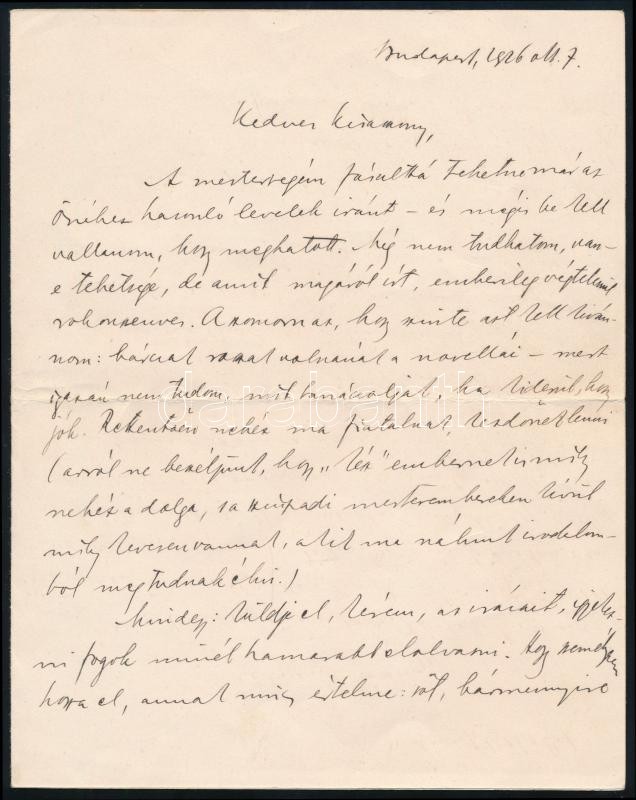 Budapest, 1926 okt. 7.
Kedves Kisasszony,
A mesterségem fásulttá tehetne már az
Önéhez hasonló levelek iránt – és mégis be kell
vallanom, hogy meghatott. Még nem tudhatom, van-
e tehetsége, de amit magáról írt, emberileg végtelenül
rokonszenves. A szomorú az, hogy szinte azt kell kíván-
nom: bárcsak rosszak volnának a novellái – mert
igazán nem tudom, mit tanácsoljak, ha kiderül, hogy
jók. Rettentően nehéz ma fiatalnak, kezdőnek lenni
(arról ne beszéljünk, hogy „kész" embernek is mily
nehéz a dolga, s a színpadi mesterembereken kívül
mily kevesen vannak, akik ma nálunk irodalom-
ból meg tudnak élni.)
Mindegy: küldje el, kérem, az írásait, igyekez-
ni fogok minél hamarabb elolvasni. Hogy személyesen
hozza el, annak nincs értelme: sőt, bármennyire
darabanth